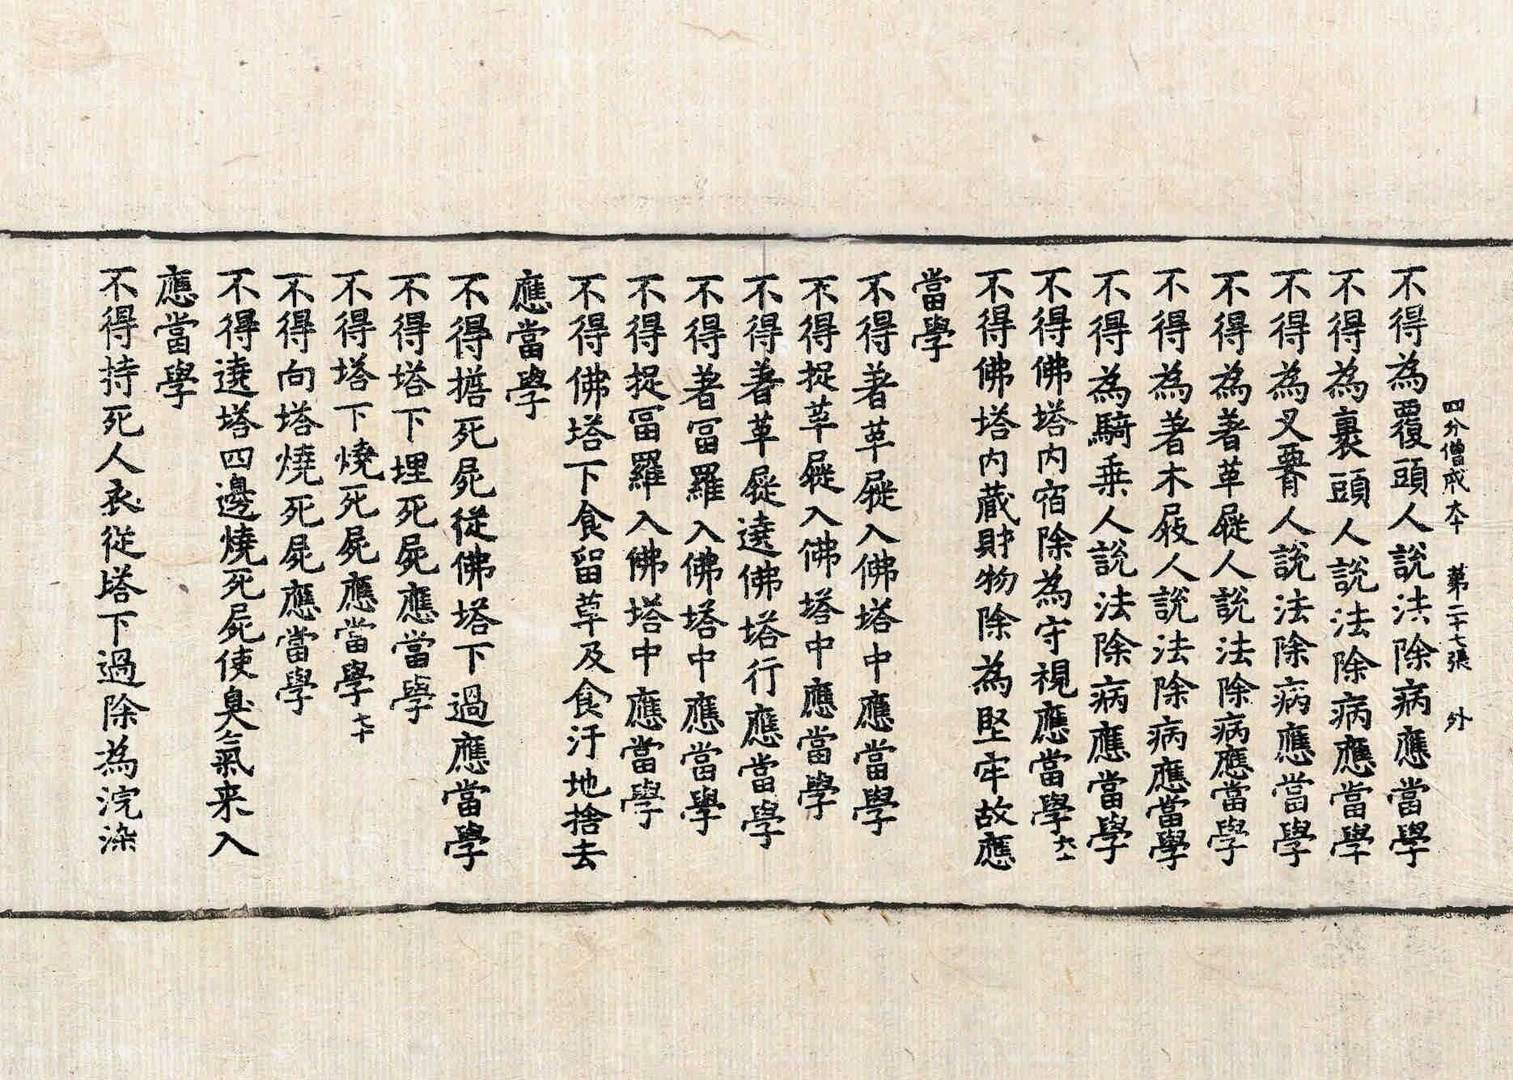 四分僧戒本 第二十七張 外
不得為覆頭人說法除病應當學
不得為裹頭人說法除病應當學
不得為叉䐡人說法除病應當學
不得為著革屣人說法除病應當學
不得為著木屐人說法除病應當學
不得為騎乗人說法除病應當學
不得佛塔內宿除為守視應當學六十一
不得佛塔內蔵財物除為堅牢故應
當學
不得著革屣入佛塔中應當學
不得捉革屣入佛塔中應當學
不得著革屣遶佛塔行應當學
不得著冨羅入佛塔中應當學
不得捉冨羅入佛塔中應當學
不得佛塔下食留草及食汙地捨去
應當學
不得擔死屍從佛塔下過應當學
不得塔下埋死屍應當學
不得塔下燒死屍應當學七十
不得向塔燒死屍應當學
不得遶塔四邊燒死屍使臭氣来入
應當學
不得持死人衣從塔下過除為浣染